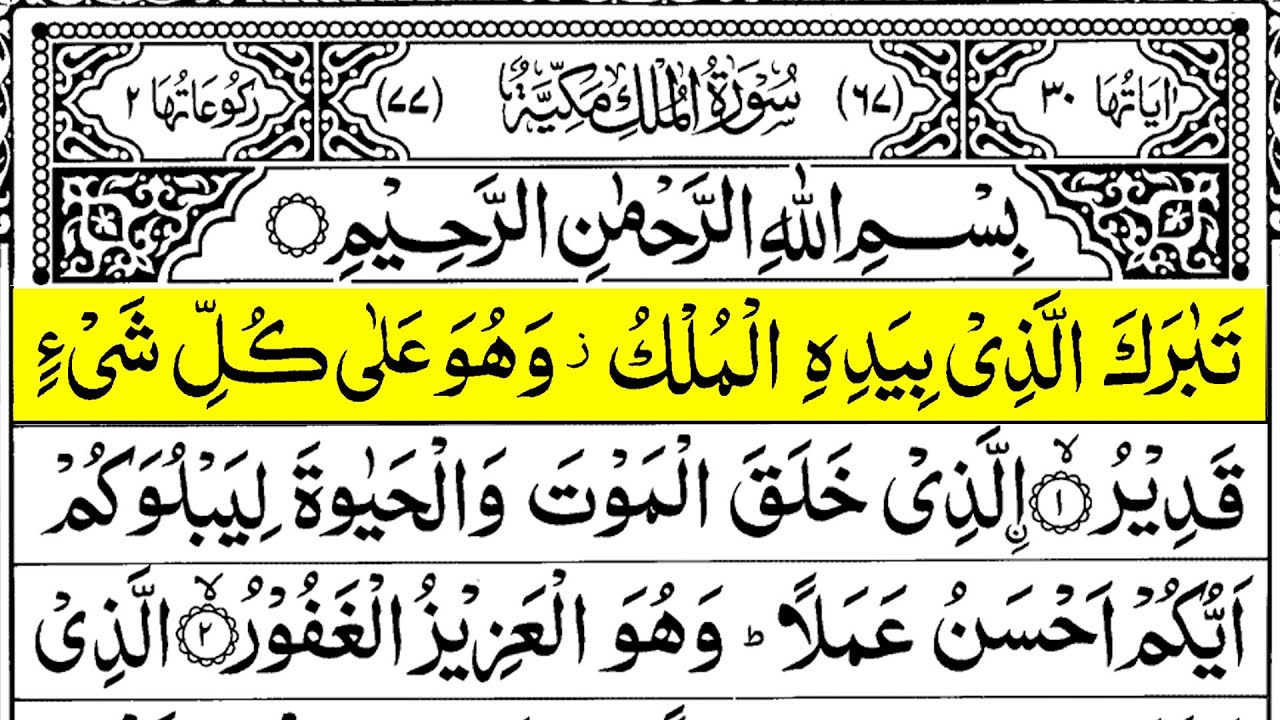 اٰیَاتُهَا ٣٠ (٦٧) سُوْرَةُ الْمُلْكِ مَكِّيَّةٌ (٧٧) رُكُوْعَاتُهَا ٢
بِسْمِ اللّٰهِ الرَّحْمٰنِ الرَّحِيْمِ
تَبٰرَكَ الَّذِیْ بِیَدِهِ الْمُلْكُ ز وَهُوَ عَلٰی كُلِّ شَیْءٍ
قَدِیْرُ ۙ﴿١﴾ اِ۟لَّذِیْ خَلَقَ الْمَوْتَ وَالْحَیٰوةَ لِیَبْلُوَكُمْ
اَیُّكُمْ اَحْسَنُ عَمَلًا ؕ وَهُوَ الْعَزِیْزُ الْغَفُوْرُ ۙ﴿٢﴾ الَّذِیْ